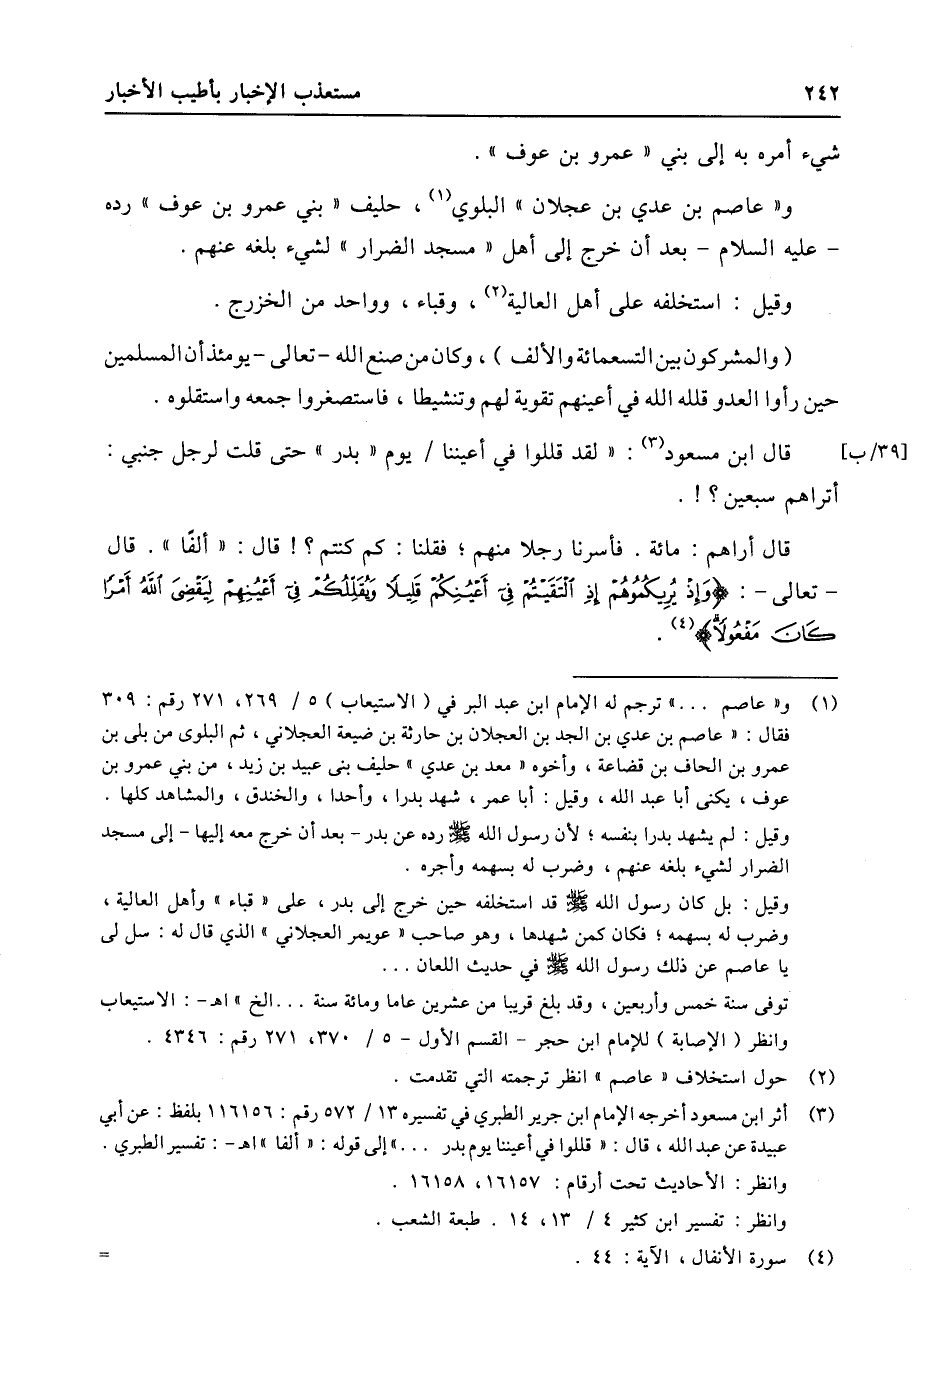 ٢٤٢ مستعذب الإخبار بأطيب الأخبار
شيء أمره به إلى بني « عمرو بن عوف » .
و« عاصم بن عدي بن عجلان » البلوي(١) ، حليف « بني عمرو بن عوف » رده
- عليه السلام - بعد أن خرج إلى أهل « مسجد الضرار » لشيء بلغه عنهم .
وقيل : استخلفه على أهل العالية(٢) ، وقباء ، وواحد من الخزرج .
( والمشركون بين التسعمائة والألف ) ، وكان من صنع الله - تعالى - يومئذ أن المسلمين
حين رأوا العدو قلله الله في أعينهم تقوية لهم وتنشيطا ، فاستصغروا جمعه واستقلوه .
[٣٩/ب] قال ابن مسعود(٣) : « لقد قللوا في أعيننا / يوم « بدر » حتى قلت لرجل جنبي :
أتراهم سبعين ؟! .
قال أراهم : مائة . فأسرنا رجلا منهم ؛ فقلنا : كم كنتم ؟! قال : « ألفًا » . قال
- تعالى - : ﴿وَإِذْ يُرِيكُمُوهُمْ إِذِ الْتَقَيْتُمْ فِي أَعْيُنِكُمْ قَلِيلًا وَيُقَلِّلُكُمْ فِي أَعْيُنِهِمْ لِيَقْضِيَ اللَّهُ أَمْرًا
كَانَ مَفْعُولًا﴾(٤) .
(١) و« عاصم ...» ترجم له الإمام ابن عبد البر في ( الاستيعاب ) ٥ / ٢٦٩، ٢٧١ رقم : ٣٠٩
فقال : « عاصم بن عدي بن الجد بن العجلان بن حارثة بن ضيعة العجلاني ، ثم البلوى من بلى بن
عمرو بن الحاف بن قضاعة ، وأخوه « معد بن عدي » حليف بنى عبيد بن زيد ، من بني عمرو بن
عوف ، يكنى أبا عبد الله ، وقيل : أبا عمر ، شهد بدرا ، وأحدا ، والخندق ، والمشاهد كلها .
وقيل : لم يشهد بدرا بنفسه ؛ لأن رسول الله ﷺ رده عن بدر - بعد أن خرج معه إليها - إلى مسجد
الضرار لشيء بلغه عنهم ، وضرب له بسهمه وأجره .
وقيل : بل كان رسول الله ﷺ قد استخلفه حين خرج إلى بدر ، على « قباء » وأهل العالية ،
وضرب له بسهمه ؛ فكان كمن شهدها ، وهو صاحب « عويمر العجلاني » الذي قال له : سل لى
يا عاصم عن ذلك رسول الله ﷺ في حديث اللعان ...
توفى سنة خمس وأربعين ، وقد بلغ قريبا من عشرين عاما ومائة سنة ...الخ » اهـ- : الاستيعاب
وانظر ( الإصابة ) للإمام ابن حجر - القسم الأول - ٥ / ٣٧٠، ٢٧١ رقم : ٤٣٤٦ .
(٢) حول استخلاف « عاصم » انظر ترجمته التي تقدمت .
(٣) أثر ابن مسعود أخرجه الإمام ابن جرير الطبري في تفسيره ١٣ / ٥٧٢ رقم : ١١٦١٥٦ بلفظ : عن أبي
عبيدة عن عبد الله ، قال : « قللوا في أعيننا يوم بدر ...» إلى قوله : « ألفا » اهـ- : تفسير الطبري .
وانظر : الأحاديث تحت أرقام : ١٦١٥٧، ١٦١٥٨ .
وانظر : تفسير ابن كثير ٤ / ١٣، ١٤ . طبعة الشعب .
(٤) سورة الأنفال ، الآية : ٤٤ . =